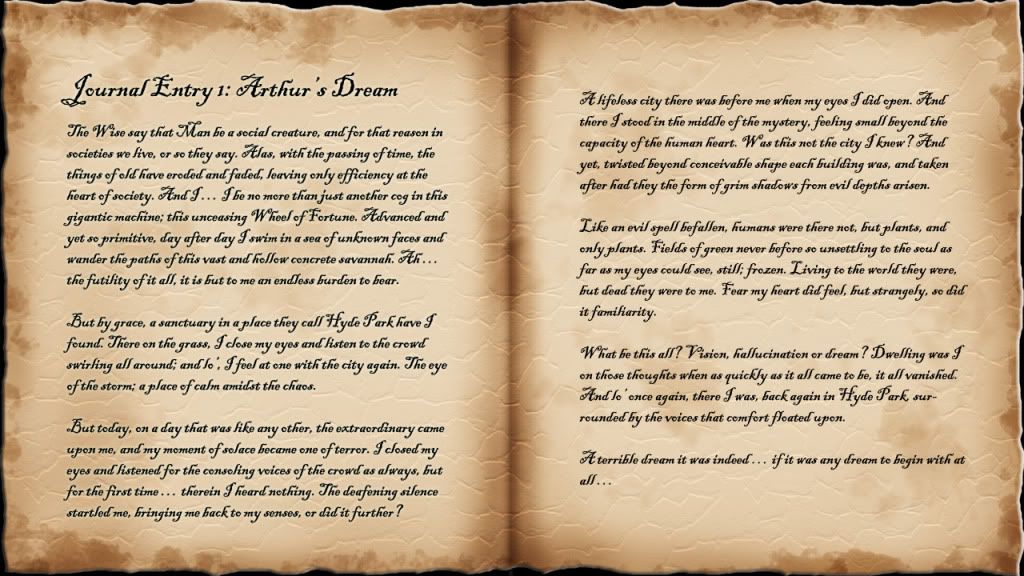 Journal Entry 1: Arthur's Dream
The Wise say that Man be a social creature, and for that reason in
societies we live, or so they say. Alas, with the passing of time, the
things of old have eroded and faded, leaving only efficiency at the
heart of society. And I... I be no more than just another cog in this
gigantic machine; this unceasing Wheel of Fortune. Advanced and
yet so primitive, day after day I swim in a sea of unknown faces and
wander the paths of this vast and hollow concrete savannah. Ah...
the futility of it all, it is but to me an endless burden to bear.
But by grace, a sanctuary in a place they call Hyde Park have I
found. There on the grass, I close my eyes and listen to the crowd
swirling all around; and lo', I feel at one with the city again. The eye
of the storm; a place of calm amidst the chaos.
But today, on a day that was like any other, the extraordinary came
upon me, and my moment of solace became one of terror. I closed my
eyes and listened for the consoling voices of the crowd as always, but
for the first time... therein I heard nothing. The deafening silence
startled me, bringing me back to my senses, or did it further?
A lifeless city there was before me when my eyes I did open. And
there I stood in the middle of the mystery, feeling small beyond the
capacity of the human heart. Was this not the city I knew? And
yet, twisted beyond conceivable shape each building was, and taken
after had they the form of grim shadows from evil depths arisen.
Like an evil spell befallen, humans were there not, but plants, and
only plants. Fields of green never before so unsettling to the soul as
far as my eyes could see, still; frozen. Living to the world they were,
but dead they were to me. Fear my heart did feel, but strangely, so did
it familiarity.
What be this all? Vision, hallucination or dream? Dwelling was I
on those thoughts when as quickly as it all came to be, it all vanished.
And lo' once again, there I was, back again in Hyde Park, sur-
rounded by the voices that comfort floated upon.
A terrible dream it was indeed... if it was any dream to begin with at
all...